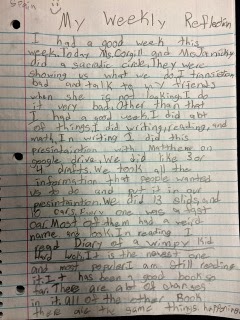 My Weekly Reflection
I had a good week this
week. Today Ms. Corgill and Ms.
did a socratic circle. They were
showing us what we do. I transition
bad and talk to my friends
when she is not looking. I do
it very bad. Other than that
I had a good week. I did alot
of things. I did writing, reading, and
math. In writing I did this
presintaintion with Matthew on
google drive. We did like 3 or
4 drafts. We took all the
information that people wanted
us to do and put it in our
presintaintion. We did 13 slids and
cars. Every one was a fast
car. Most of them had a weird
name and look. In reading I
read Diary of a Wimpy Kid
Hard Luck. It is the newest one
and most populer. I am still reading
it. I has been good book so
far. There are alot of changes
in it all of the other Book
there are the same things happening